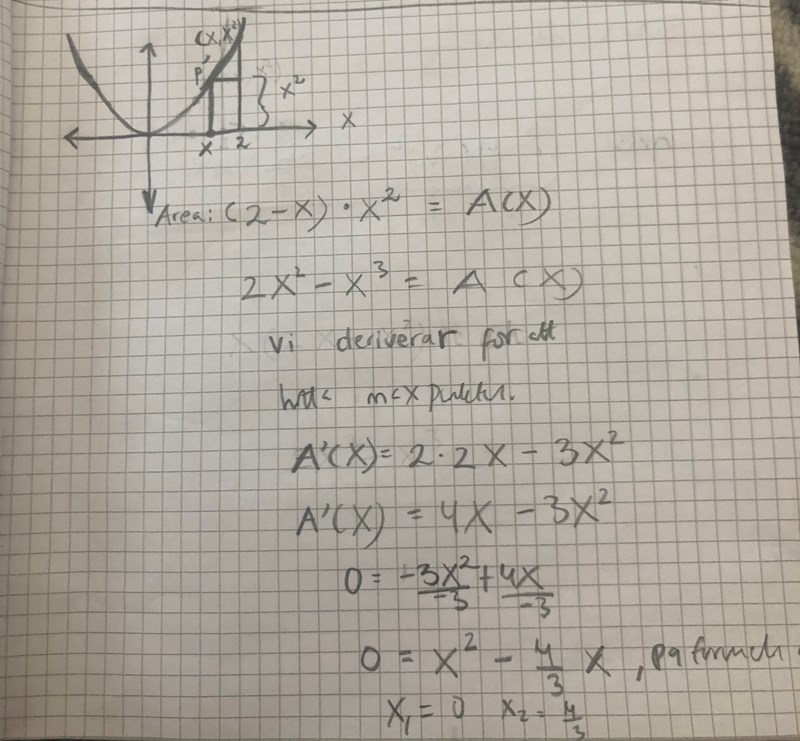 (x, x²)
P
x²
x
x 2
Area: (2-x) · x² = A(x)
2x² - x³ = A(x)
vi deriverar för att
hitta max punkten.
A'(x) = 2·2x - 3x²
A'(x) = 4x - 3x²
0 = -3x²/-3 + 4x/-3
0 = x² - 4/3 x, pq formeln
x₁ = 0 x₂ = 4/3